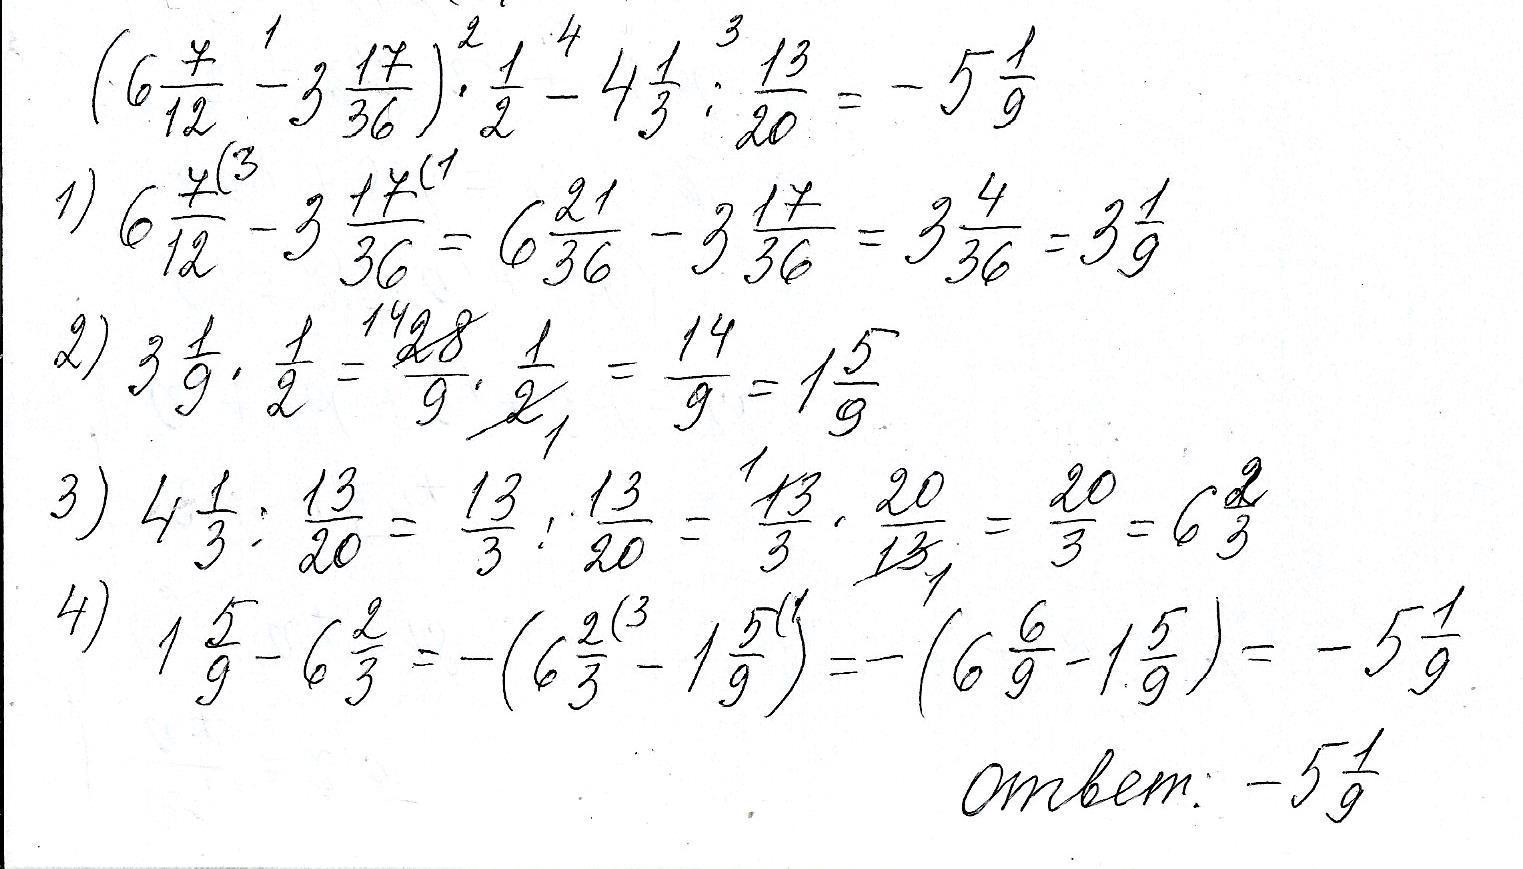 (6 7/12 - 3 17/36) · 1/2 - 4 1/3 : 13/20 = - 5 1/9
1) 6 7/12 (3 - 3 17/36 (1 = 6 21/36 - 3 17/36 = 3 4/36 = 3 1/9
2) 3 1/9 · 1/2 = 14 28/9 · 1/2 1 = 14/9 = 1 5/9
3) 4 1/3 : 13/20 = 13/3 : 13/20 = 1 13/3 · 20/13 1 = 20/3 = 6 2/3
4) 1 5/9 - 6 2/3 = - (6 2/3 (3 - 1 5/9 (1) = - (6 6/9 - 1 5/9) = - 5 1/9
ответ: - 5 1/9